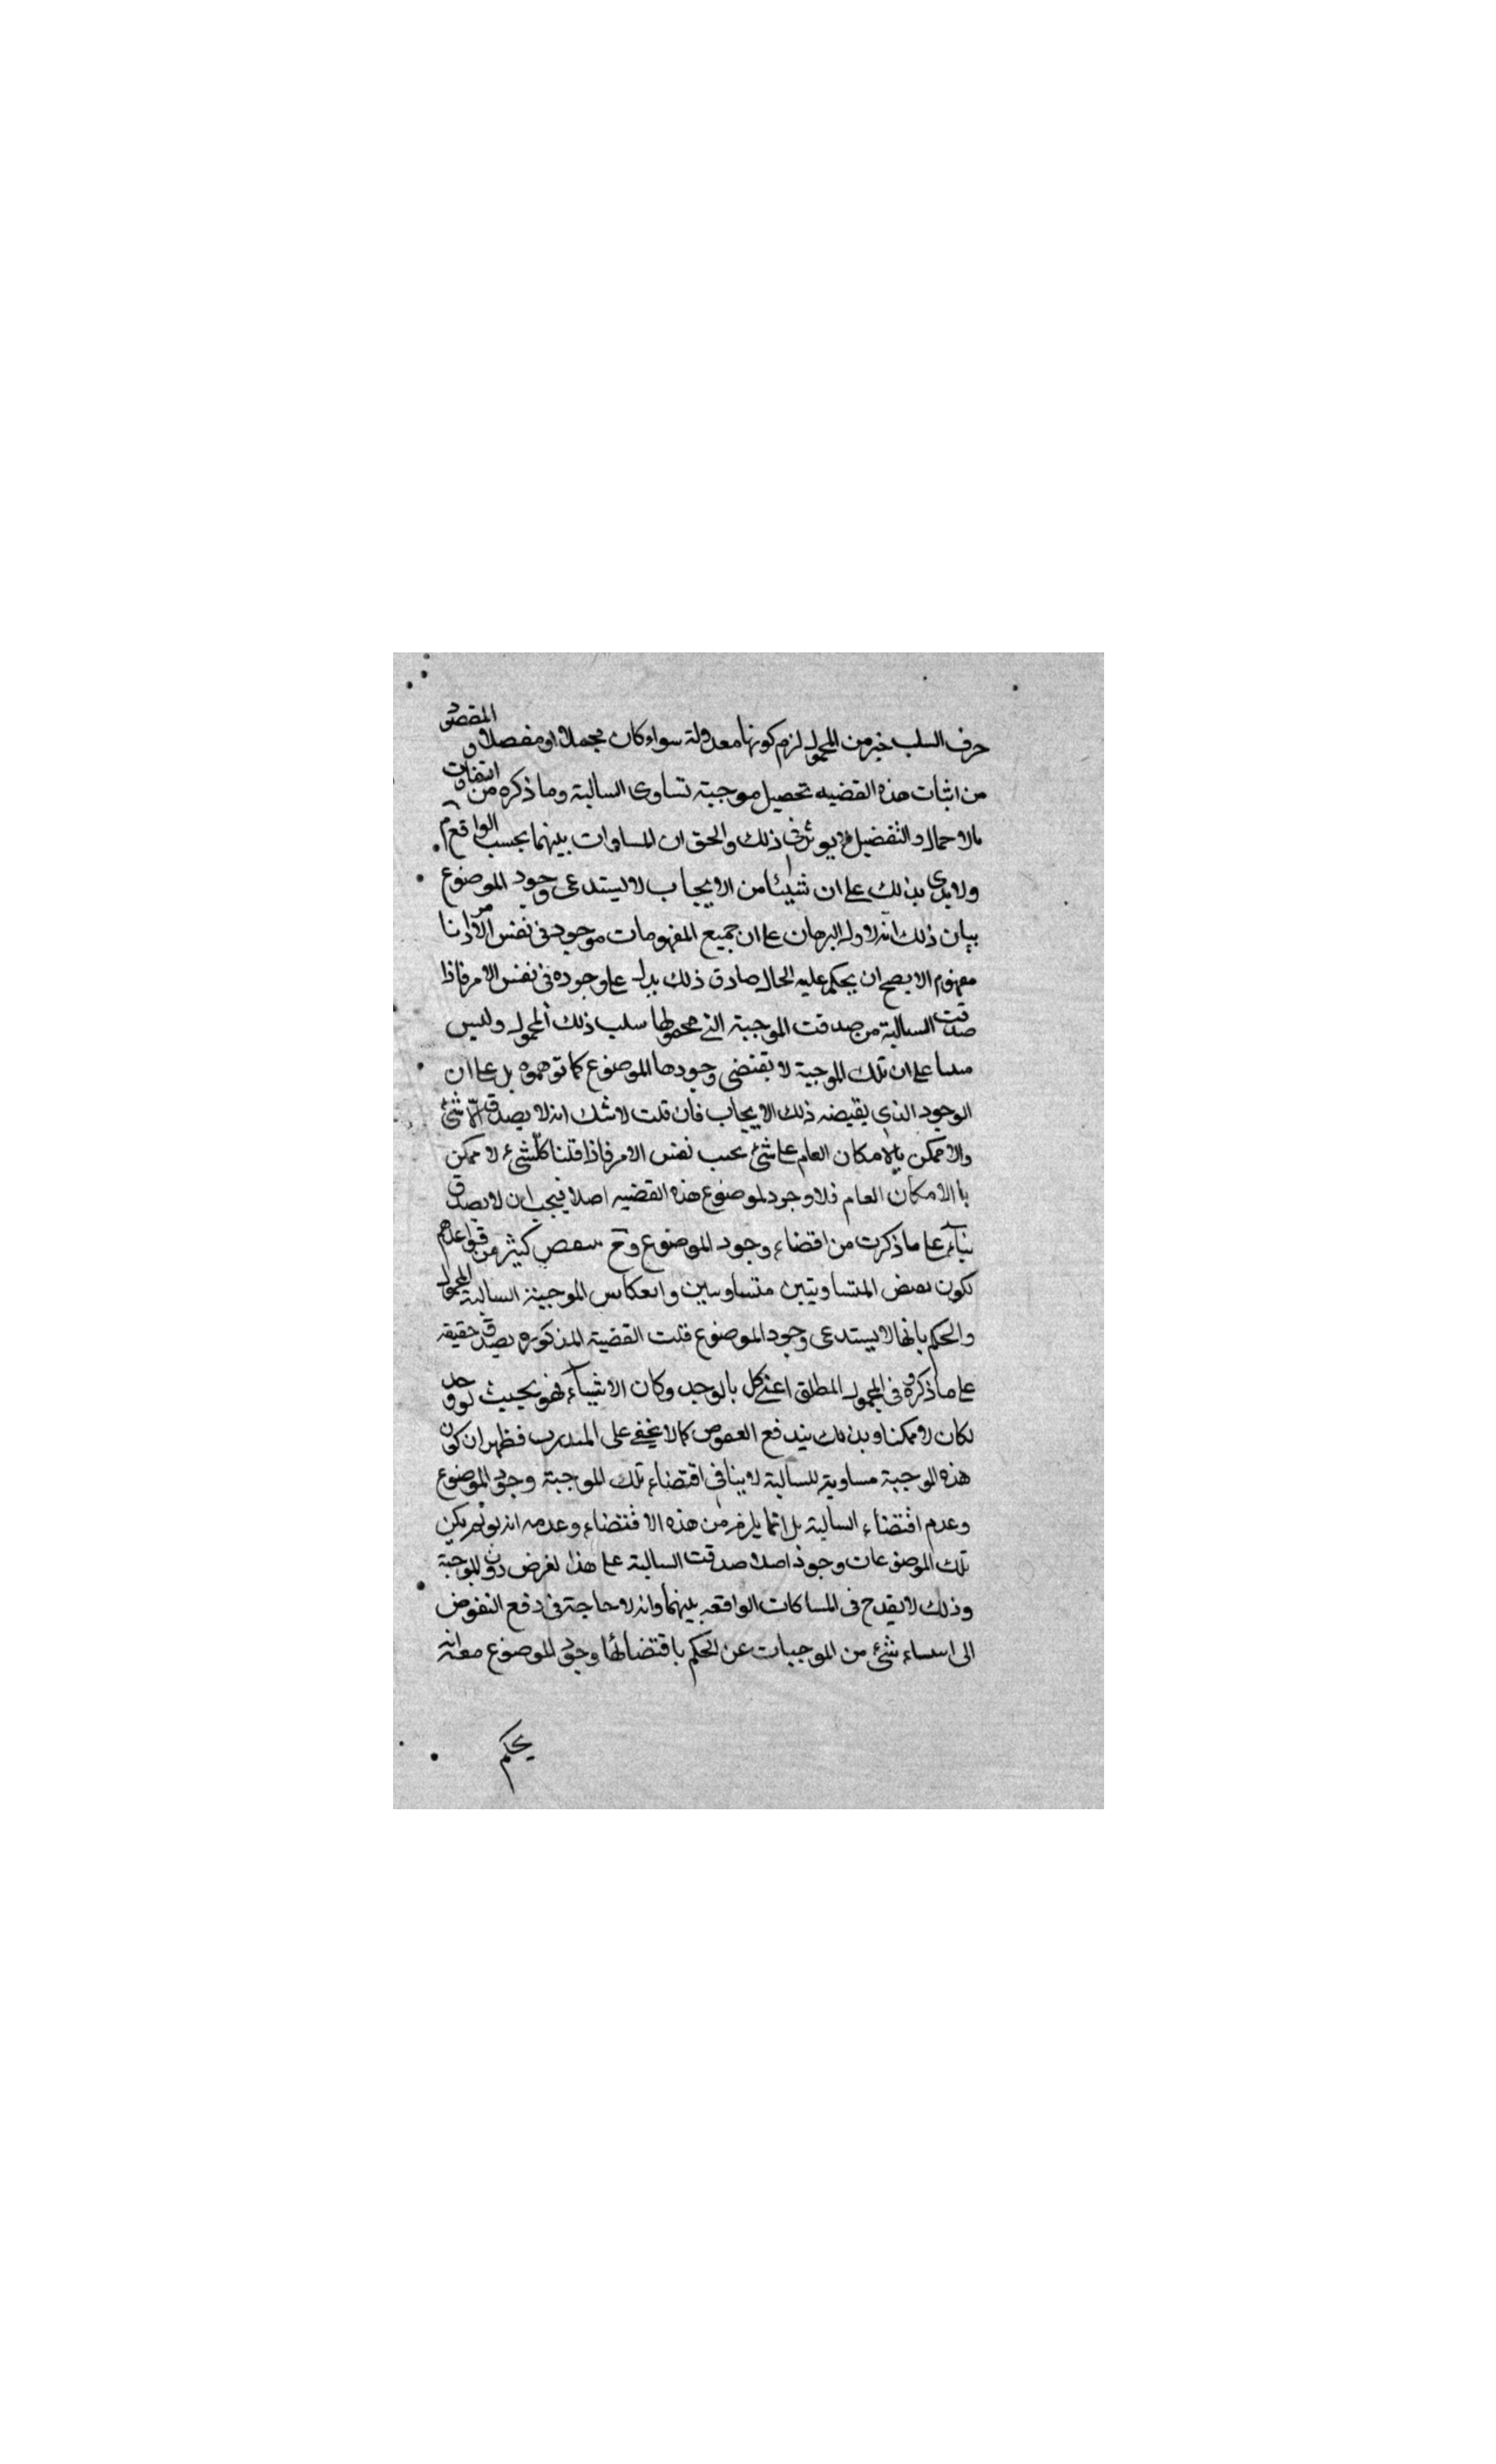 حرف السلب خبر من المحمول لزم كونها معدولة سواء كان مجملا او مفصلا و المقصود
من اثبات هذه القضيه تحصيل موجبة تساوى السالبة وما ذكره من التفاوت
بالاجمال والتفضيل لا يوثر فى ذلك والحق ان المساوات بينهما بحسب الواقع
ولا بذلك على ان شيئا من الايجاب لا يستدعى وجود الموضوع
بيان ذلك انه لا دل البرهان على ان جميع المفهومات موجود فى نفس الامر
مفهوم الا يصح ان يحكم عليه الحال صادق ذلك يدل على وجوده فى نفس الامر فاذا
صدقت السالبة من صدقت الموجبة التى محمولها سلب ذلك المحمول وليس
على ان تلك الموجبة لا يقتضى وجودها الموضوع كما توهموه بل على ان
الوجود الذى يقيضه ذلك الايجاب فان قلت لا شك انه لا يصدق الا شئ
والا ممكن بالامكان العام على شئ بحسب نفس الامر فاذا قلنا كل شئ لا ممكن
با الامكان العام فلا وجود لموضوع هذه القضيه اصلا فيجب ان لا يصدق
بناء على ما ذكرت من اقضاء وجود الموضوع وح كثير من قواعدهم
لكون بعض المتساويتين متساويين وانعكاس الموجبة السالبة المحمول
والحكم بانها لا يستدعى وجود الموضوع قلت القضية المذكوره يصدق حقيقه
على ما ذكروه فى المجهول المطلق اعنى كل بالوجد وكان الاشياء فهو بحيث لو وجد
لكان لا ممكنا وبذلك يندفع كما لا يخفى على المتدرب فظهر ان كون
هذه الموجبة مساوية للسالبة لا ينافى اقتضاء تلك الموجبة وجود الموضوع
وعدم اقتضاء السالبة بل انما يلزم من هذه الاقتضاء وعدمه انه لو لم يكن
تلك الموضوعات وجود اصلا صدقت السالبة على هذا لفرض دون الموجبة
وذلك لا يقدح فى المساكات الواقعه بينهما وانه لا حاجة فى دفع النقوض
الى شئ من الموجبات عن الحكم باقتضائها وجود الموضوع مع انه
يحكم